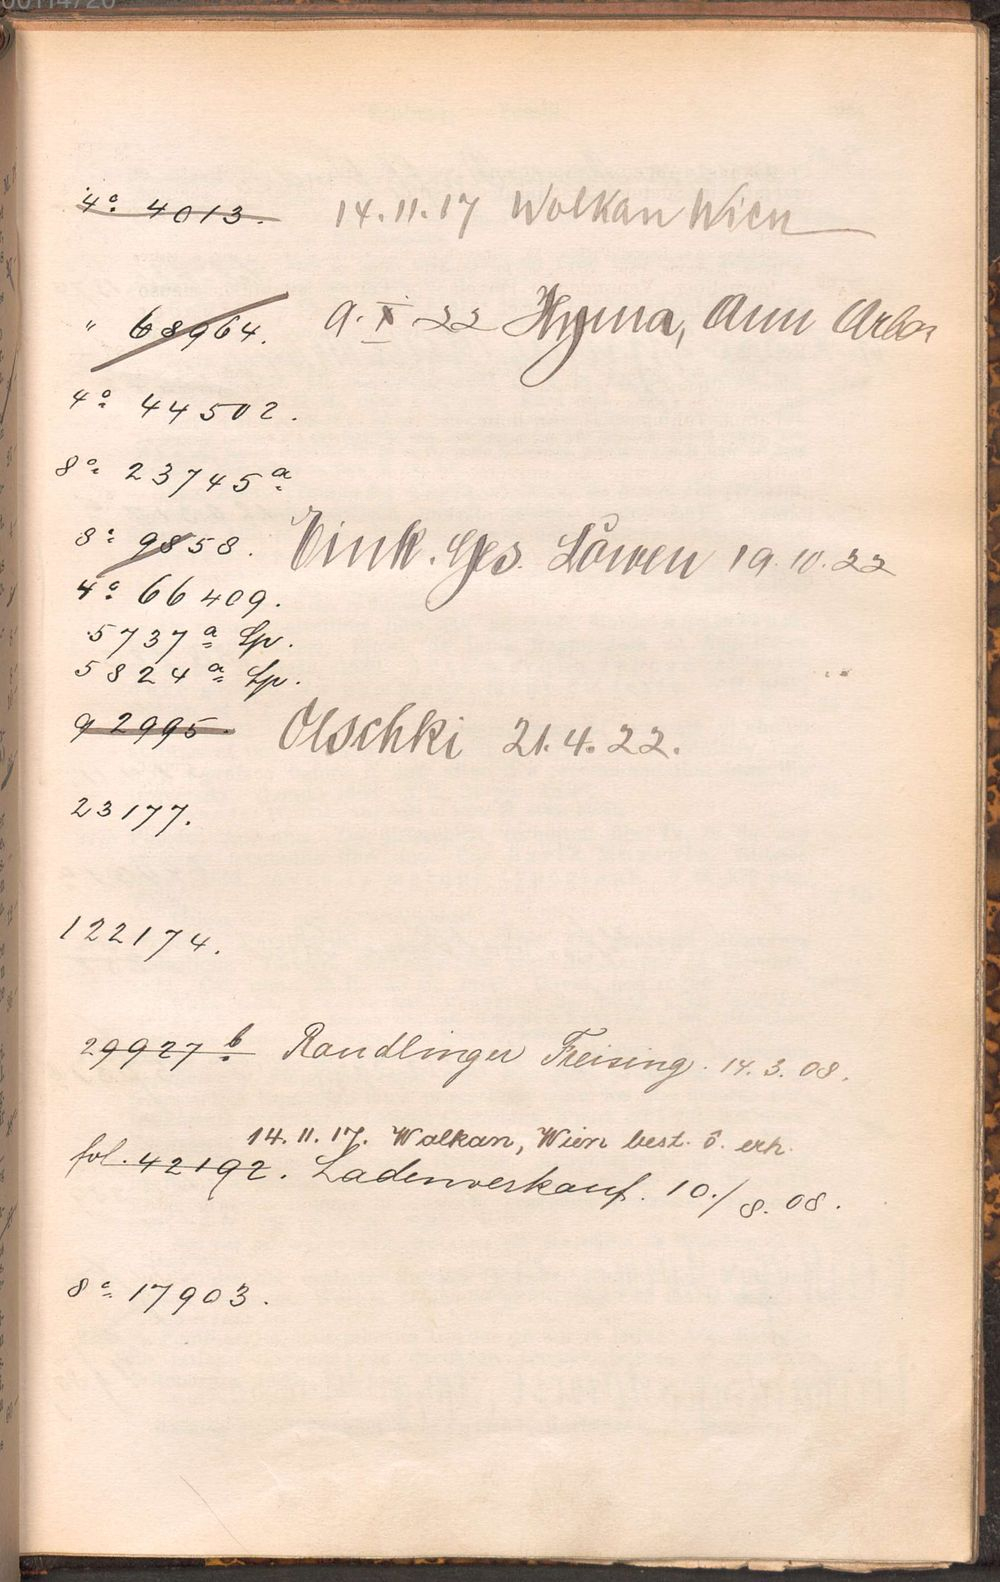 00114720
4o 4013. 14.11.17 Wolkan Wien
" 68964. 9. X. 22 Hyma, Ann Arbor
4o 44502.
8o 23745a
8o 9858. Eink. Ges. Löwen 19.10.22
4o 66409.
5737a Lp.
5824a Lp.
92995. Olschki 21.4.22.
23177.
122174.
29927b Randlinger Freising. 14.3.08.
14.11.17. Wolkan, Wien best. erh.
fol. 42192. Ladenverkauf. 10./8.08.
8o 17903.